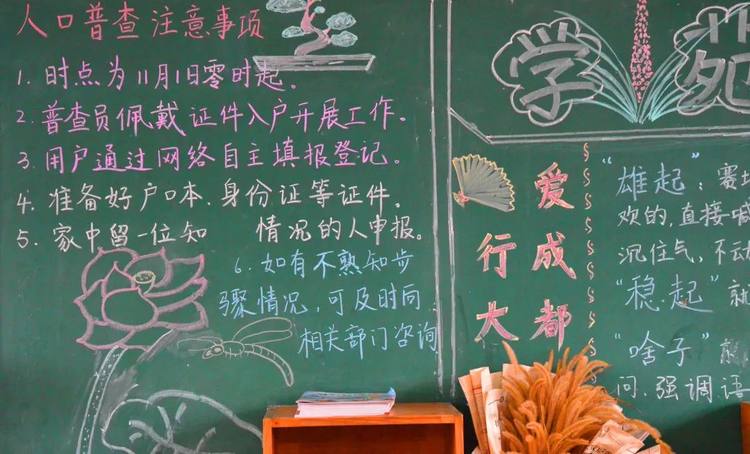 人口普查注意事项
1. 时点为11月1日零时起。
2. 普查员佩戴证件入户开展工作。
3. 用户通过网络自主填报登记。
4. 准备好户口本.身份证等证件。
5. 家中留一位知 情况的人申报。
6. 如有不熟知步
骤情况,可及时向
相关部门咨询
学苑
爱成都
行大
"雄起":赛场
欢的,直接喊
沉住气,不动
"稳起"就
"啥子"就
问.强调语